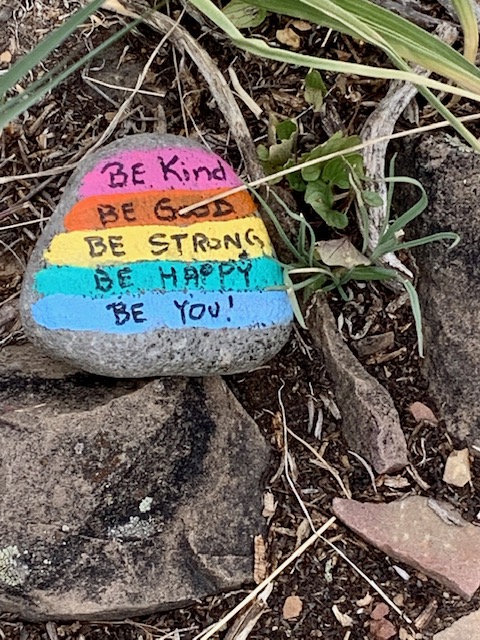 BE Kind
BE GOOD
BE STRONG
BE HAPPY
BE YOU!